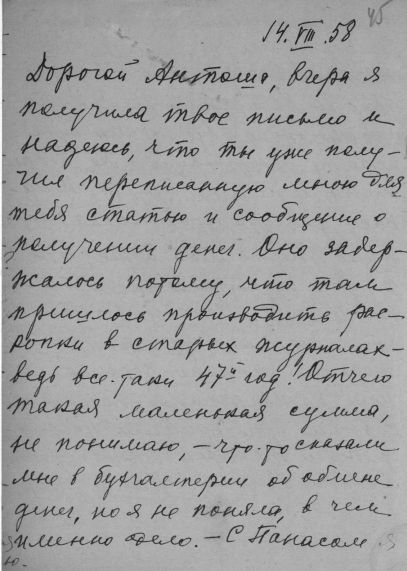 45
14.VIII.58
Дорогой Антоша, вчера я
получила твое письмо и
надеюсь, что ты уже полу-
чил переписанную мною для
тебя статью и сообщение о
получении денег. Оно задер-
жалось потому, что там
пришлось производить рас-
копки в старых журналах-
ведь все-таки 47й год! Отчего
такая маленькая сумма,
не понимаю, - что-то сказали
мне в бухгалтерии об обмене
денег, но я не поняла, в чем
именно дело. - С Панасом я